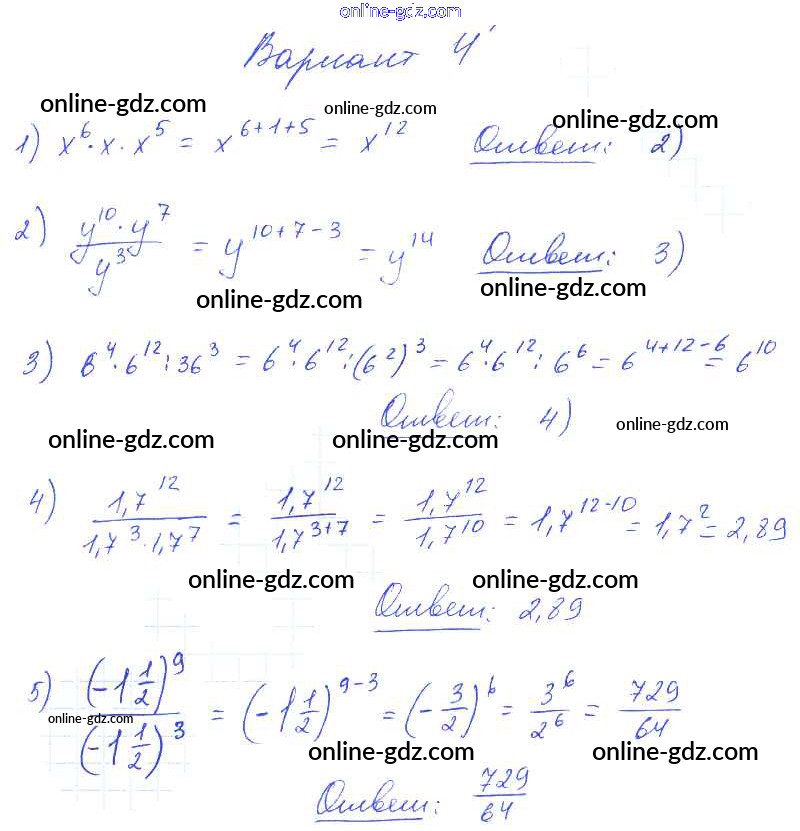 online-gdz.com
Вариант 4
online-gdz.com online-gdz.com online-gdz.com
1) x⁶·x·x⁵ = x⁶⁺¹⁺⁵ = x¹² Ответ: 2)
2) (y¹⁰·y⁷)/y³ = y¹⁰⁺⁷⁻³ = y¹⁴ Ответ: 3)
online-gdz.com online-gdz.com
3) 6⁴·6¹²:36³ = 6⁴·6¹²:(6²)³ = 6⁴·6¹²:6⁶ = 6⁴⁺¹²⁻⁶ = 6¹⁰
Ответ: 4)
online-gdz.com online-gdz.com online-gdz.com
4) 1,7¹²/(1,7³·1,7⁷) = 1,7¹²/1,7³⁺⁷ = 1,7¹²/1,7¹⁰ = 1,7¹²⁻¹⁰ = 1,7² = 2,89
online-gdz.com online-gdz.com
Ответ: 2,89
5) (-1 1/2)⁹/(-1 1/2)³ = (-1 1/2)⁹⁻³ = (-3/2)⁶ = 3⁶/2⁶ = 729/64
online-gdz.com
online-gdz.com online-gdz.com
Ответ: 729/64